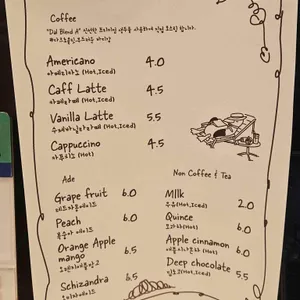 Coffee
Americano 4.0
아메리카노 (Hot, Iced)
Caff Latte 4.5
카페라떼 (Hot, Iced)
Vanilla Latte 5.5
(Hot, Iced)
Cappuccino 4.5
카푸치노 (Hot)
Ade
Grape fruit 6.0
레드자몽에이드
Peach 6.0
복숭아 에이드
Orange Apple
mango 6.5
Schizandra 6.5
오미자에이드
Non Coffee & Tea
Milk 2.0
우유 (Hot, Iced)
Quince 6.0
모과차 (Hot)
Apple cinnamon 6.0
(Hot)
Deep chocolate 5.5
(Hot, Iced)